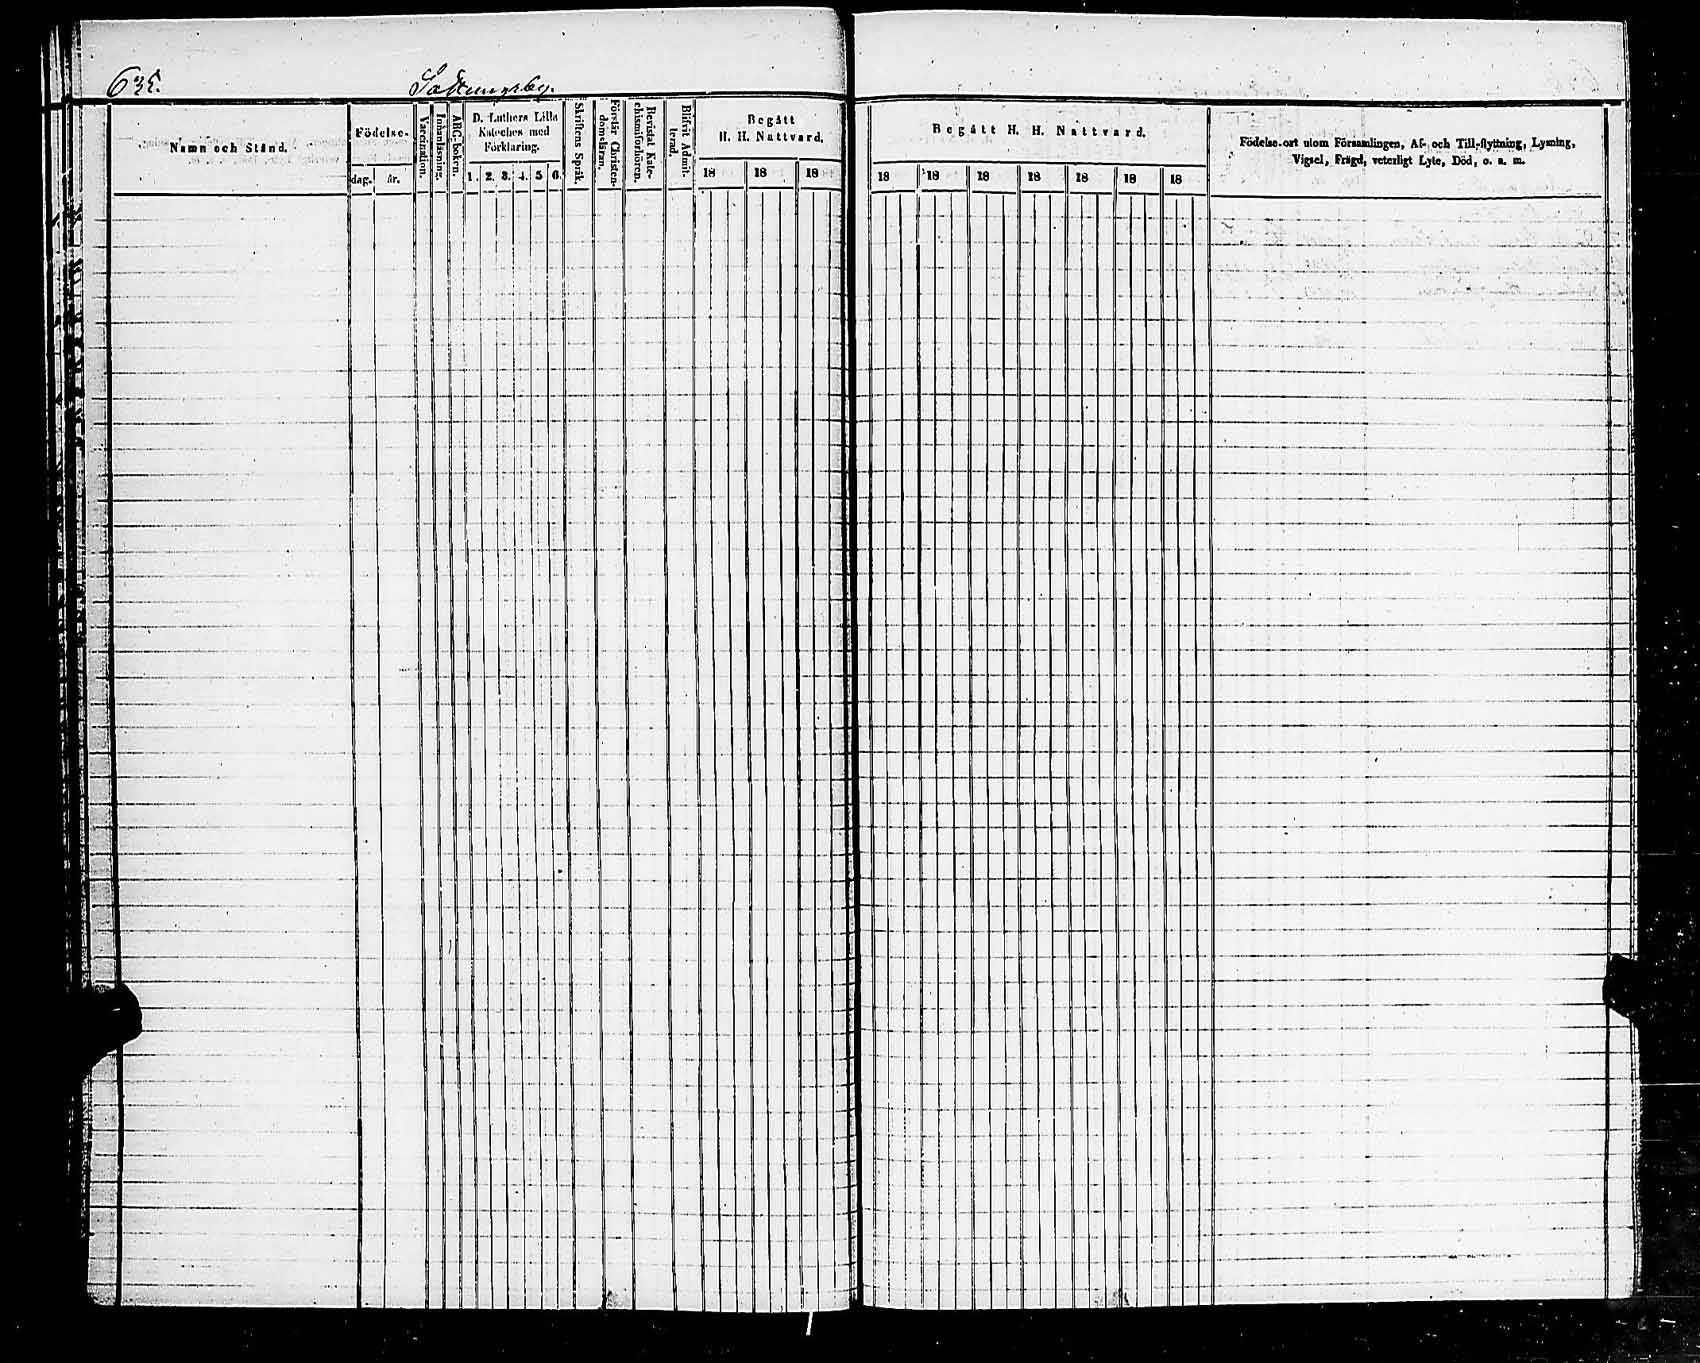 635.
Namn och Stånd.
Födelse.
dag. år.
Vaccination.
Innanläsning.
ABC-boken.
D. Luthers Lilla
Kateches med
Förklaring.
1. 2. 3. 4. 5 6.
Skriftens Språk.
Förstår Christen-
domsläran.
Bevistat Kate-
chismiförhören.
Blifvit Admit-
terad.
Begått
H. H. Nattvard.
18 18 18
Begått H. H. Nattvard.
18 18 18 18 18 18 18
Födelse-ort utom Församlingen, Af- och Till-flyttning, Lysning,
Vigsel, Frägd, veterligt Lyte, Död, o. s. m.